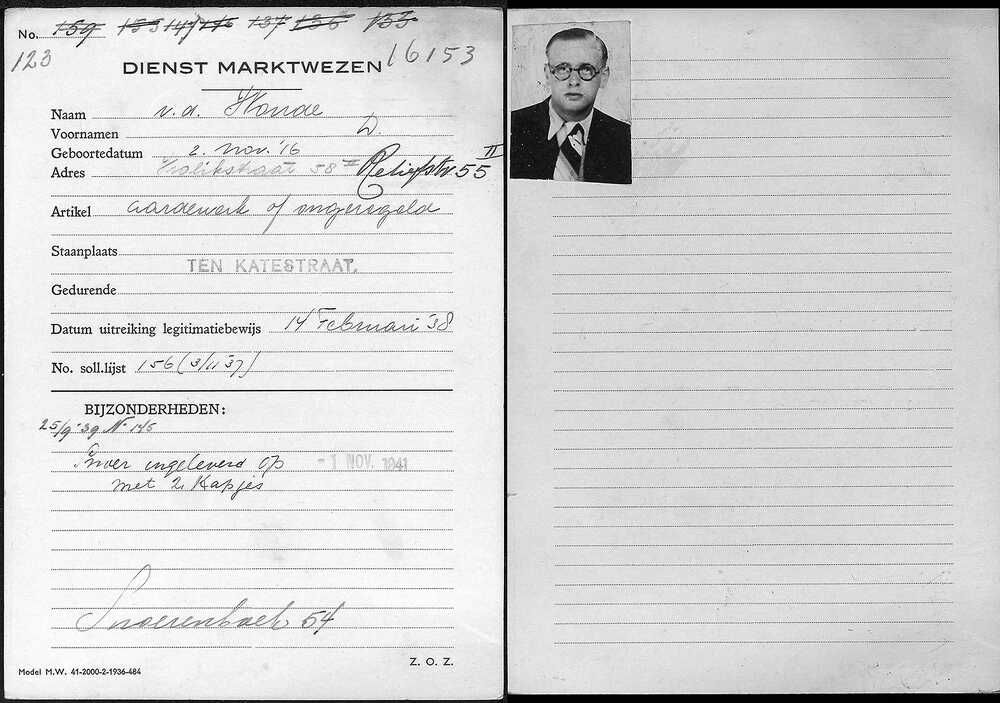 No. 159 155 147 146 137 136 133
123
16153
DIENST MARKTWEZEN
Naam v.d. Honde
Voornamen D.
Geboortedatum 2 Nov. '16
Adres 58 II Retiefstr. 55 II
Artikel aardewerk of ongeregeld
Staanplaats
TEN KATESTRAAT.
Gedurende
Datum uitreiking legitimatiebewijs 14 Februari '38
No. soll.lijst 156 (3/11 37)
BIJZONDERHEDEN:
25/9-39 No 145
Snoer ingeleverd op -1 NOV. 1941
met 2 Kapjes
Snoerenboek 54
Model M.W. 41-2000-2-1936-484
Z. O. Z.